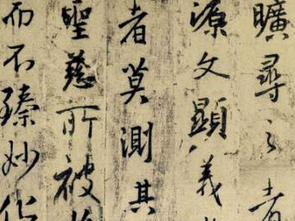 曠尋之者
源文顯義
者莫測其
聖慈所被
而不臻妙